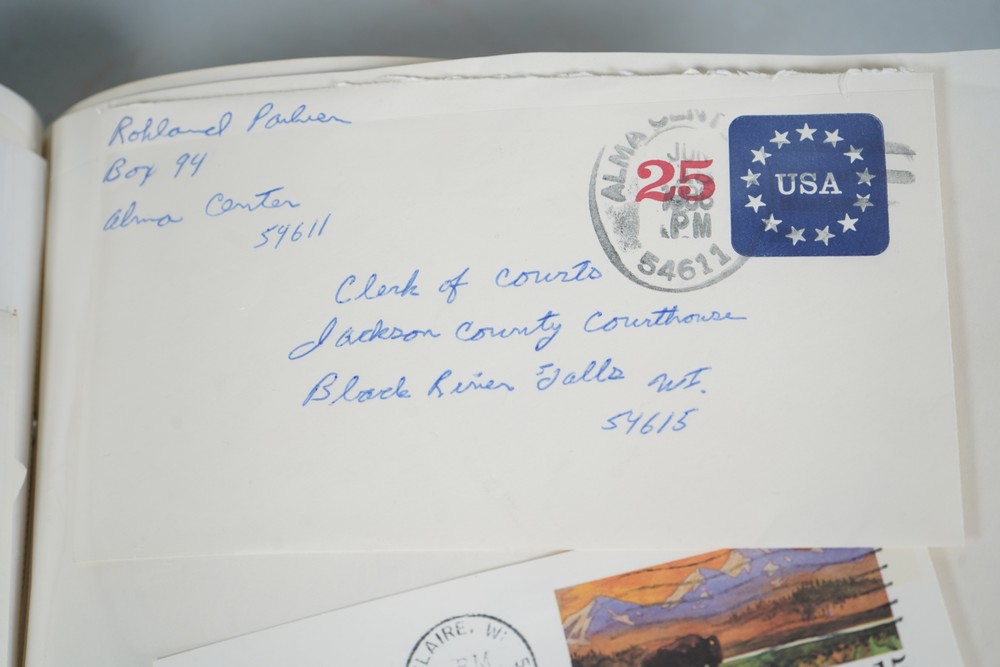 Rohland Parker
Box 94
Alma Center
54611
ALMA CENT
JU
PM
54611
25
USA
Clerk of Courts
Jackson County Courthouse
Black River Falls WI.
54615
LAIRE, W
PM